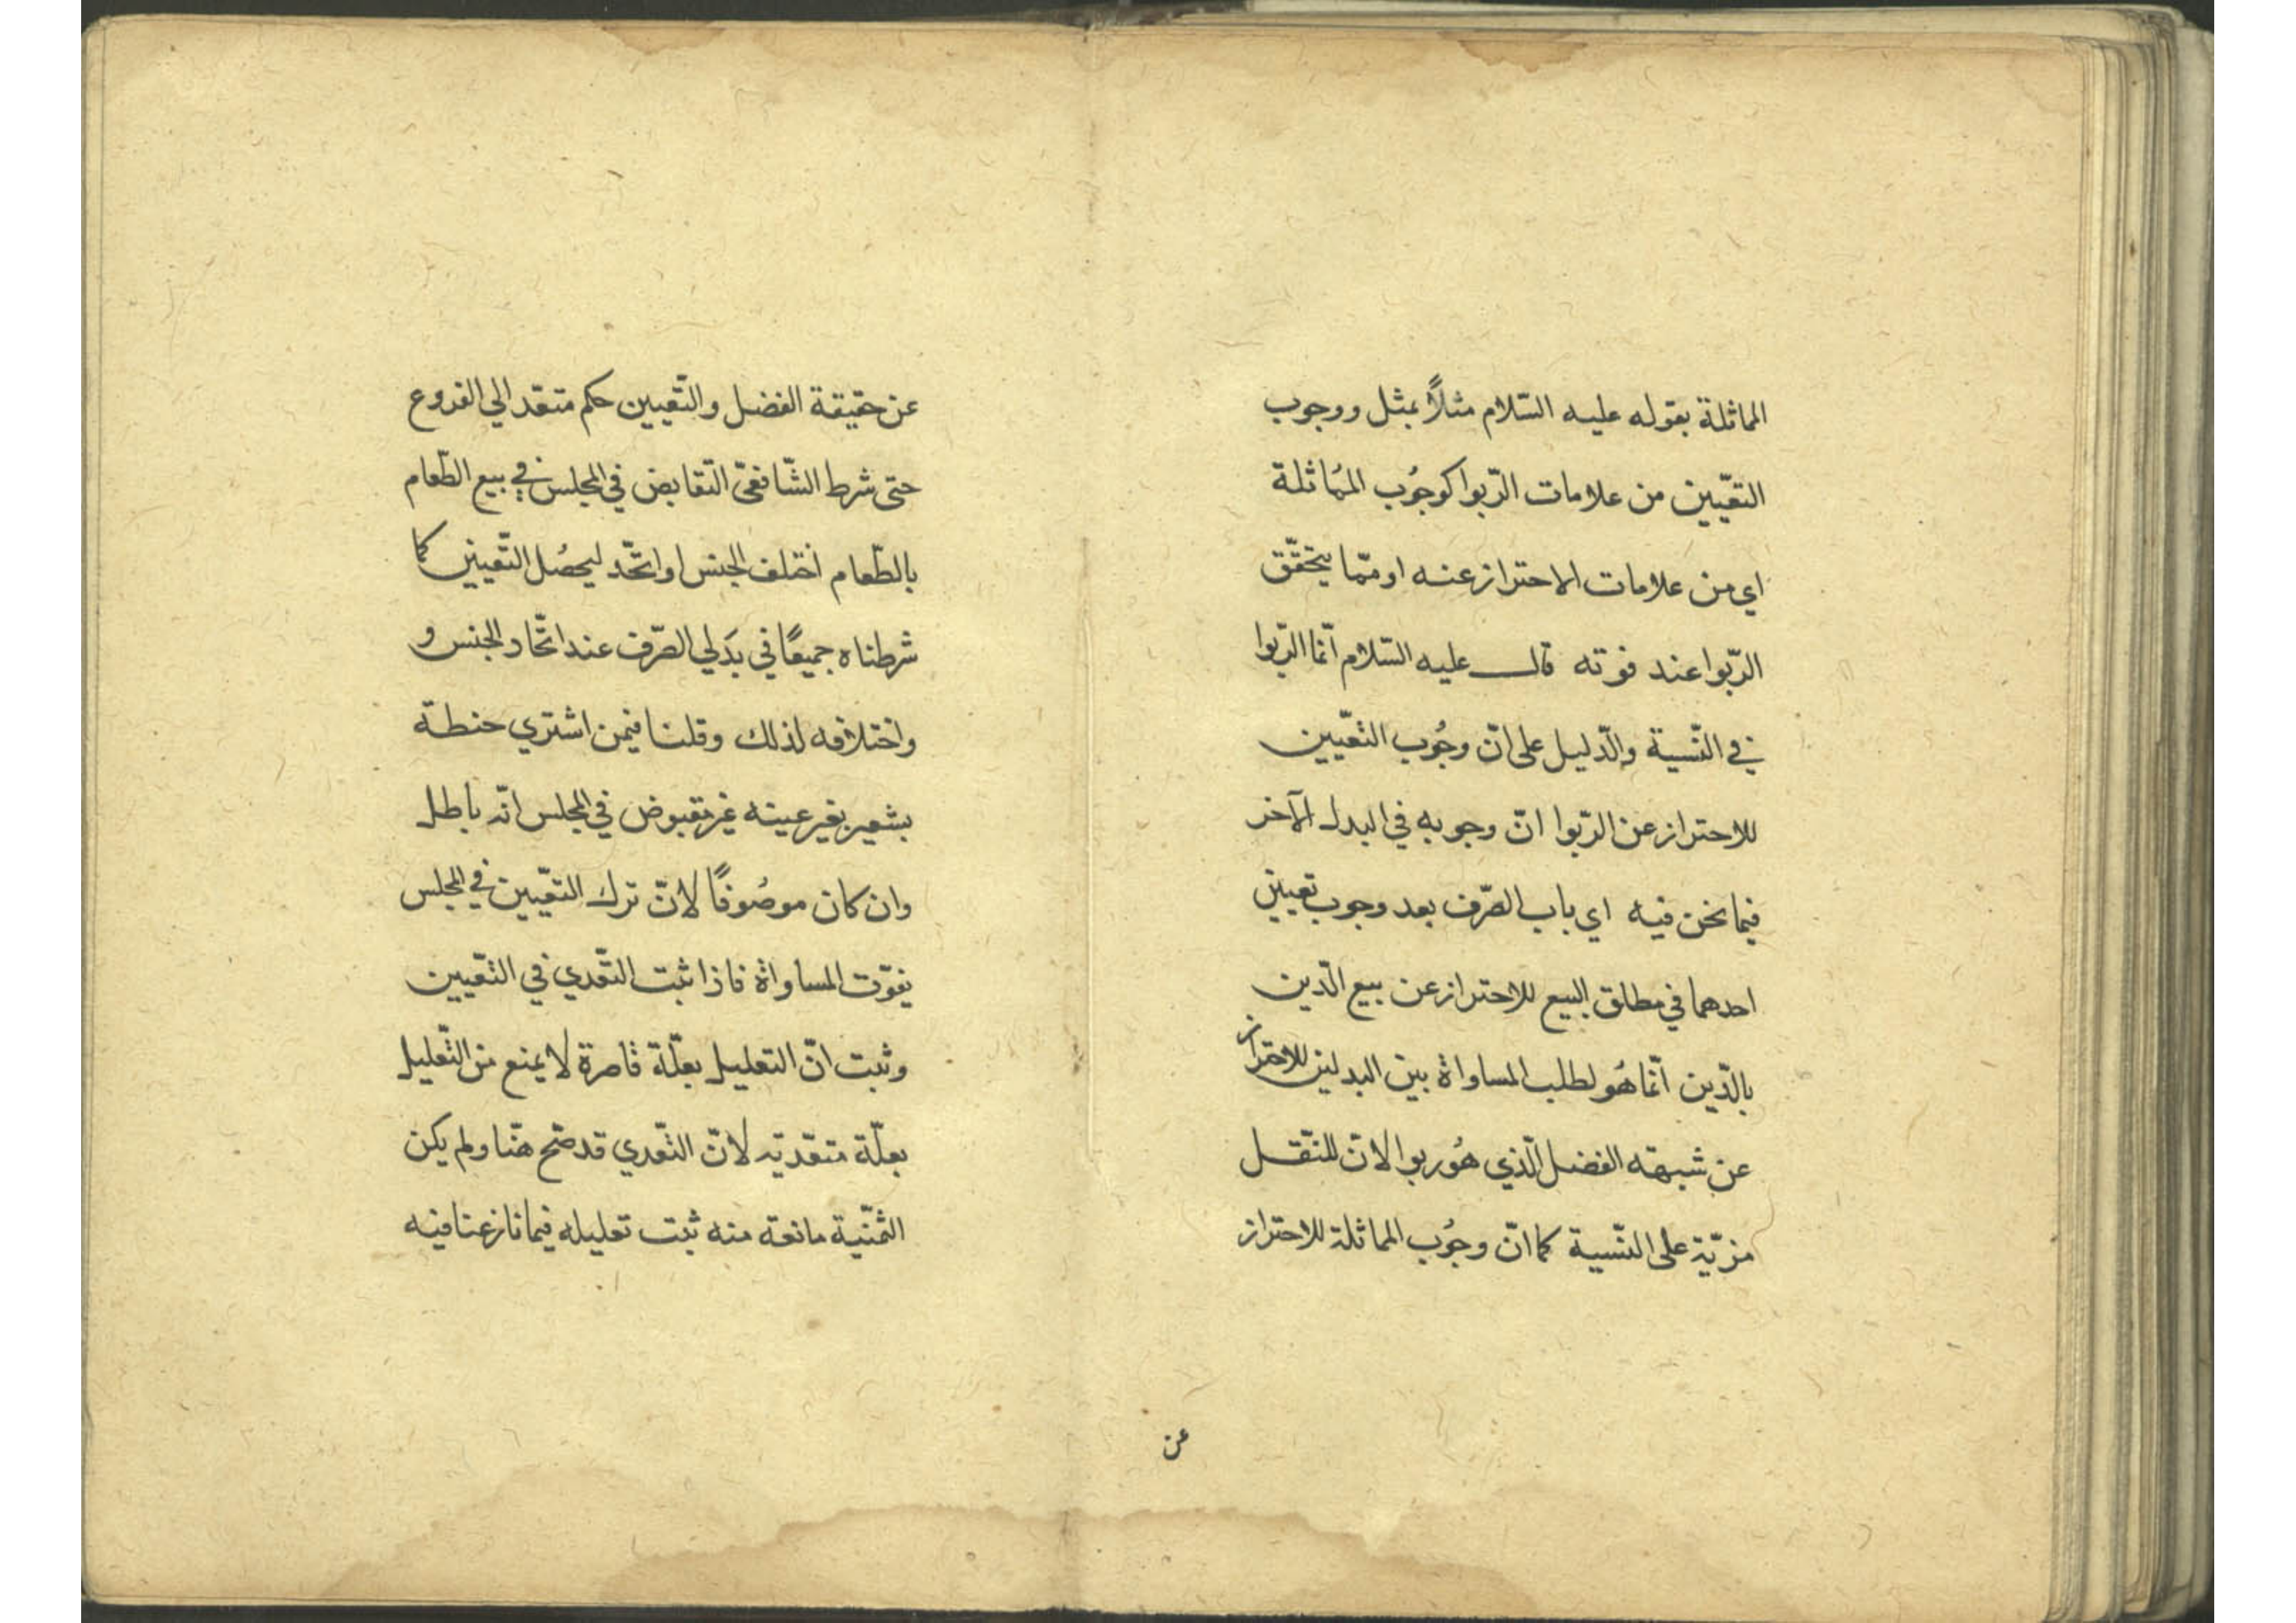 المماثلة بقوله عليه السّلام مثلاً بمثل ووجوب
التعّيين من علامات الرّبوا كوجُوب المُماثلة
اي من علامات الاحتراز عنه او ممّا يتحقّق
الرّبوا عند فوته قال عليه السّلام انّما الرّبوا
في النّسية والدّليل على انّ وجُوب التّعيين
للاحتراز عن الرّبوا انّ وجوبه في البدل الآخر
فيما نحن فيه اي باب الصّرف بعد وجوب تعيين
احدهما في مطلق البيع للاحتراز عن بيع الدّين
بالدّين انّما هُو لطلب المساواة بين البدلين للاحتراز
عن شبهة الفضل الّذي هُو ربوا لانّ للنّقل
مزيّة على النّسية كما انّ وجُوب المماثلة للاحتراز
عن
عن حقيقة الفضل والتّعيين حكم متعّد الي الفروع
حتى شرط الشّافعىّ التّقابض في المجلس في بيع الطّعام
بالطّعام اختلف الجنس او اتّحد ليحصُل التّعيين كما
شرطناه جميعًا في بدَلي الصّرف عند اتّحاد الجنس و
واختلافه لذلك وقلنا فيمن اشتري حنطة
بشعير بغير عينه غير مقبوض في المجلس انّه باطل
وان كان موصُوفًا لانّ ترك التعّيين في المجلس
يفوّت المساواة فاذا ثبت التعّدي في التّعيين
وثبت انّ التعليل بعلّة قاصرة لا يمنع من التّعليل
بعلّة متعّدية لانّ التّعدي قد صّح هنّا ولم يكن
الثّمنيّة مانعة منه ثبت تعليله فيما نازعنا فيه